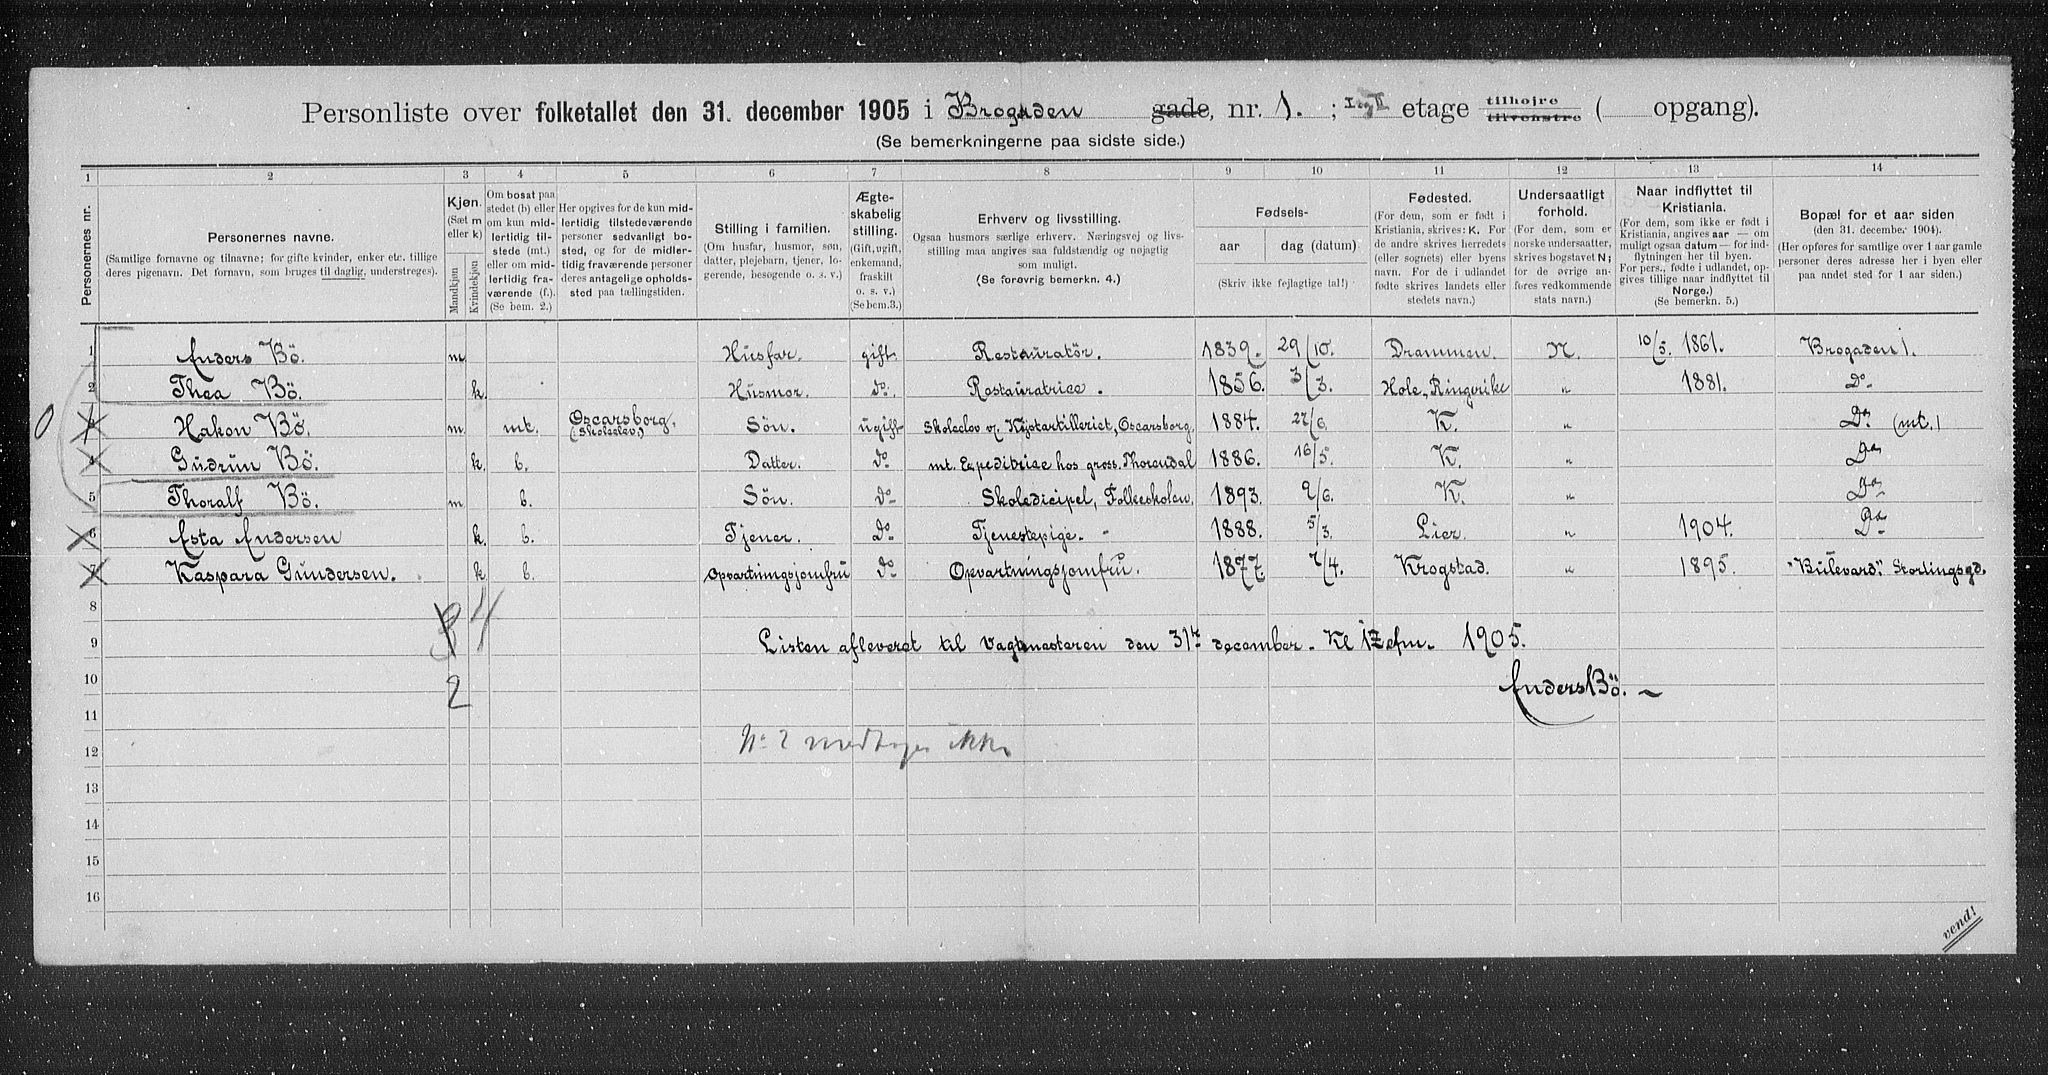 Personliste over folketallet den 31. december 1905 i Brogaden gade, nr. 1. ; I og II etage tilhøjre tilvenstre ( opgang).
(Se bemerkningerne paa sidste side.)
1 2 3 4 5 6 7 8 9 10 11 12 13 14
Personernes nr.
Personernes navne.
(Samtlige fornavne og tilnavne; for gifte kvinder, enker etc. tillige deres pigenavn. Det fornavn, som bruges til daglig, understreges).
Kjøn.
(Sæt m eller k)
Mandkjøn
Kvindekjøn
Om bosat paa stedet (b) eller om kun midlertidig tilstede (mt.) eller om midlertidig fraværende (f.) (Se bem. 2.)
Her opgives for de kun midlertidig tilstedeværende personer sedvanligt bosted, og for de midlertidig fraværende personer deres antagelige opholdssted paa tællingstiden.
Stilling i familien.
(Om husfar, husmor, søn, datter, plejebarn, tjener, logerende, besøgende o. s. v.)
Ægteskabelig stilling.
(Gift, ugift, enkemand, fraskilt o. s. v.) (Se bem.3.)
Erhverv og livsstilling.
Ogsaa husmors særlige erhverv. Næringsvej og livsstilling maa angives saa fuldstændig og nøjagtig som muligt.
(Se forøvrig bemerkn. 4.)
Fødsels-
aar
dag (datum).
(Skriv ikke fejlagtige tal!)
Fødested.
(For dem, som er født i Kristiania, skrives: K. For de andre skrives herredets (eller sognets) eller byens navn. For de i udlandet fødte skrives landets eller stedets navn.)
Undersaatligt forhold.
(For dem, som er norske undersaatter, skrives bogstavet N; for de øvrige anføres vedkommende stats navn.)
Naar indflyttet til Kristiania.
(For dem, som ikke er født i Kristiania, angives aar — om muligt ogsaa datum — for indflytningen her til byen. For pers., fødte i udlandet, opgives tillige naar indflyttet til Norge.)
(Se bemerkn. 5.)
Bopæl for et aar siden
(den 31. december 1904).
(Her opføres for samtlige over 1 aar gamle personer deres adresse her i byen eller paa andet sted for 1 aar siden.)
1 Anders Bö. m Husfar. gift. Restauratör. 1839. 29/10. Drammen. N. 10/5. 1861. Brogaden 1.
2 Thea Bö. k. Husmor. do. Restauratrice. 1856. 3/3. Hole, Ringerike " 1881. Do
0 3 Hakon Bö. m. mt. Oscarsborg. (Skoleelev) Sön. ugift Skoleelev v. Kystartilleriet, Oscarsborg. 1884. 27/6. K. " Do (mt.)
4 Gudrun Bö. k. b. Datter. do mt. Expeditrice hos gross. Thorendal 1886. 16/5. K. " Do
5 Thoralf Bö. m b. Sön. do Skoledicipel, Folkeskolen. 1893. 9/6. K. " Do
6 Asta Andersen k. b. Tjener. do Tjenestepige. 1888. 5/3. Lier. " 1904. Do
7 Kaspara Gundersen. k b. Opvartningsjomfru do Opvartningsjomfru. 1877. 7/4. Krogstad. " 1895. "Bulevard," Stortingsgd.
8 4
9 Listen afleveret til Vagtmesteren den 31te december. Kl 12 efm. 1905.
10 2 Anders Bö.
11
12 No 2 medtages ikke
13
14
15
16
vend!